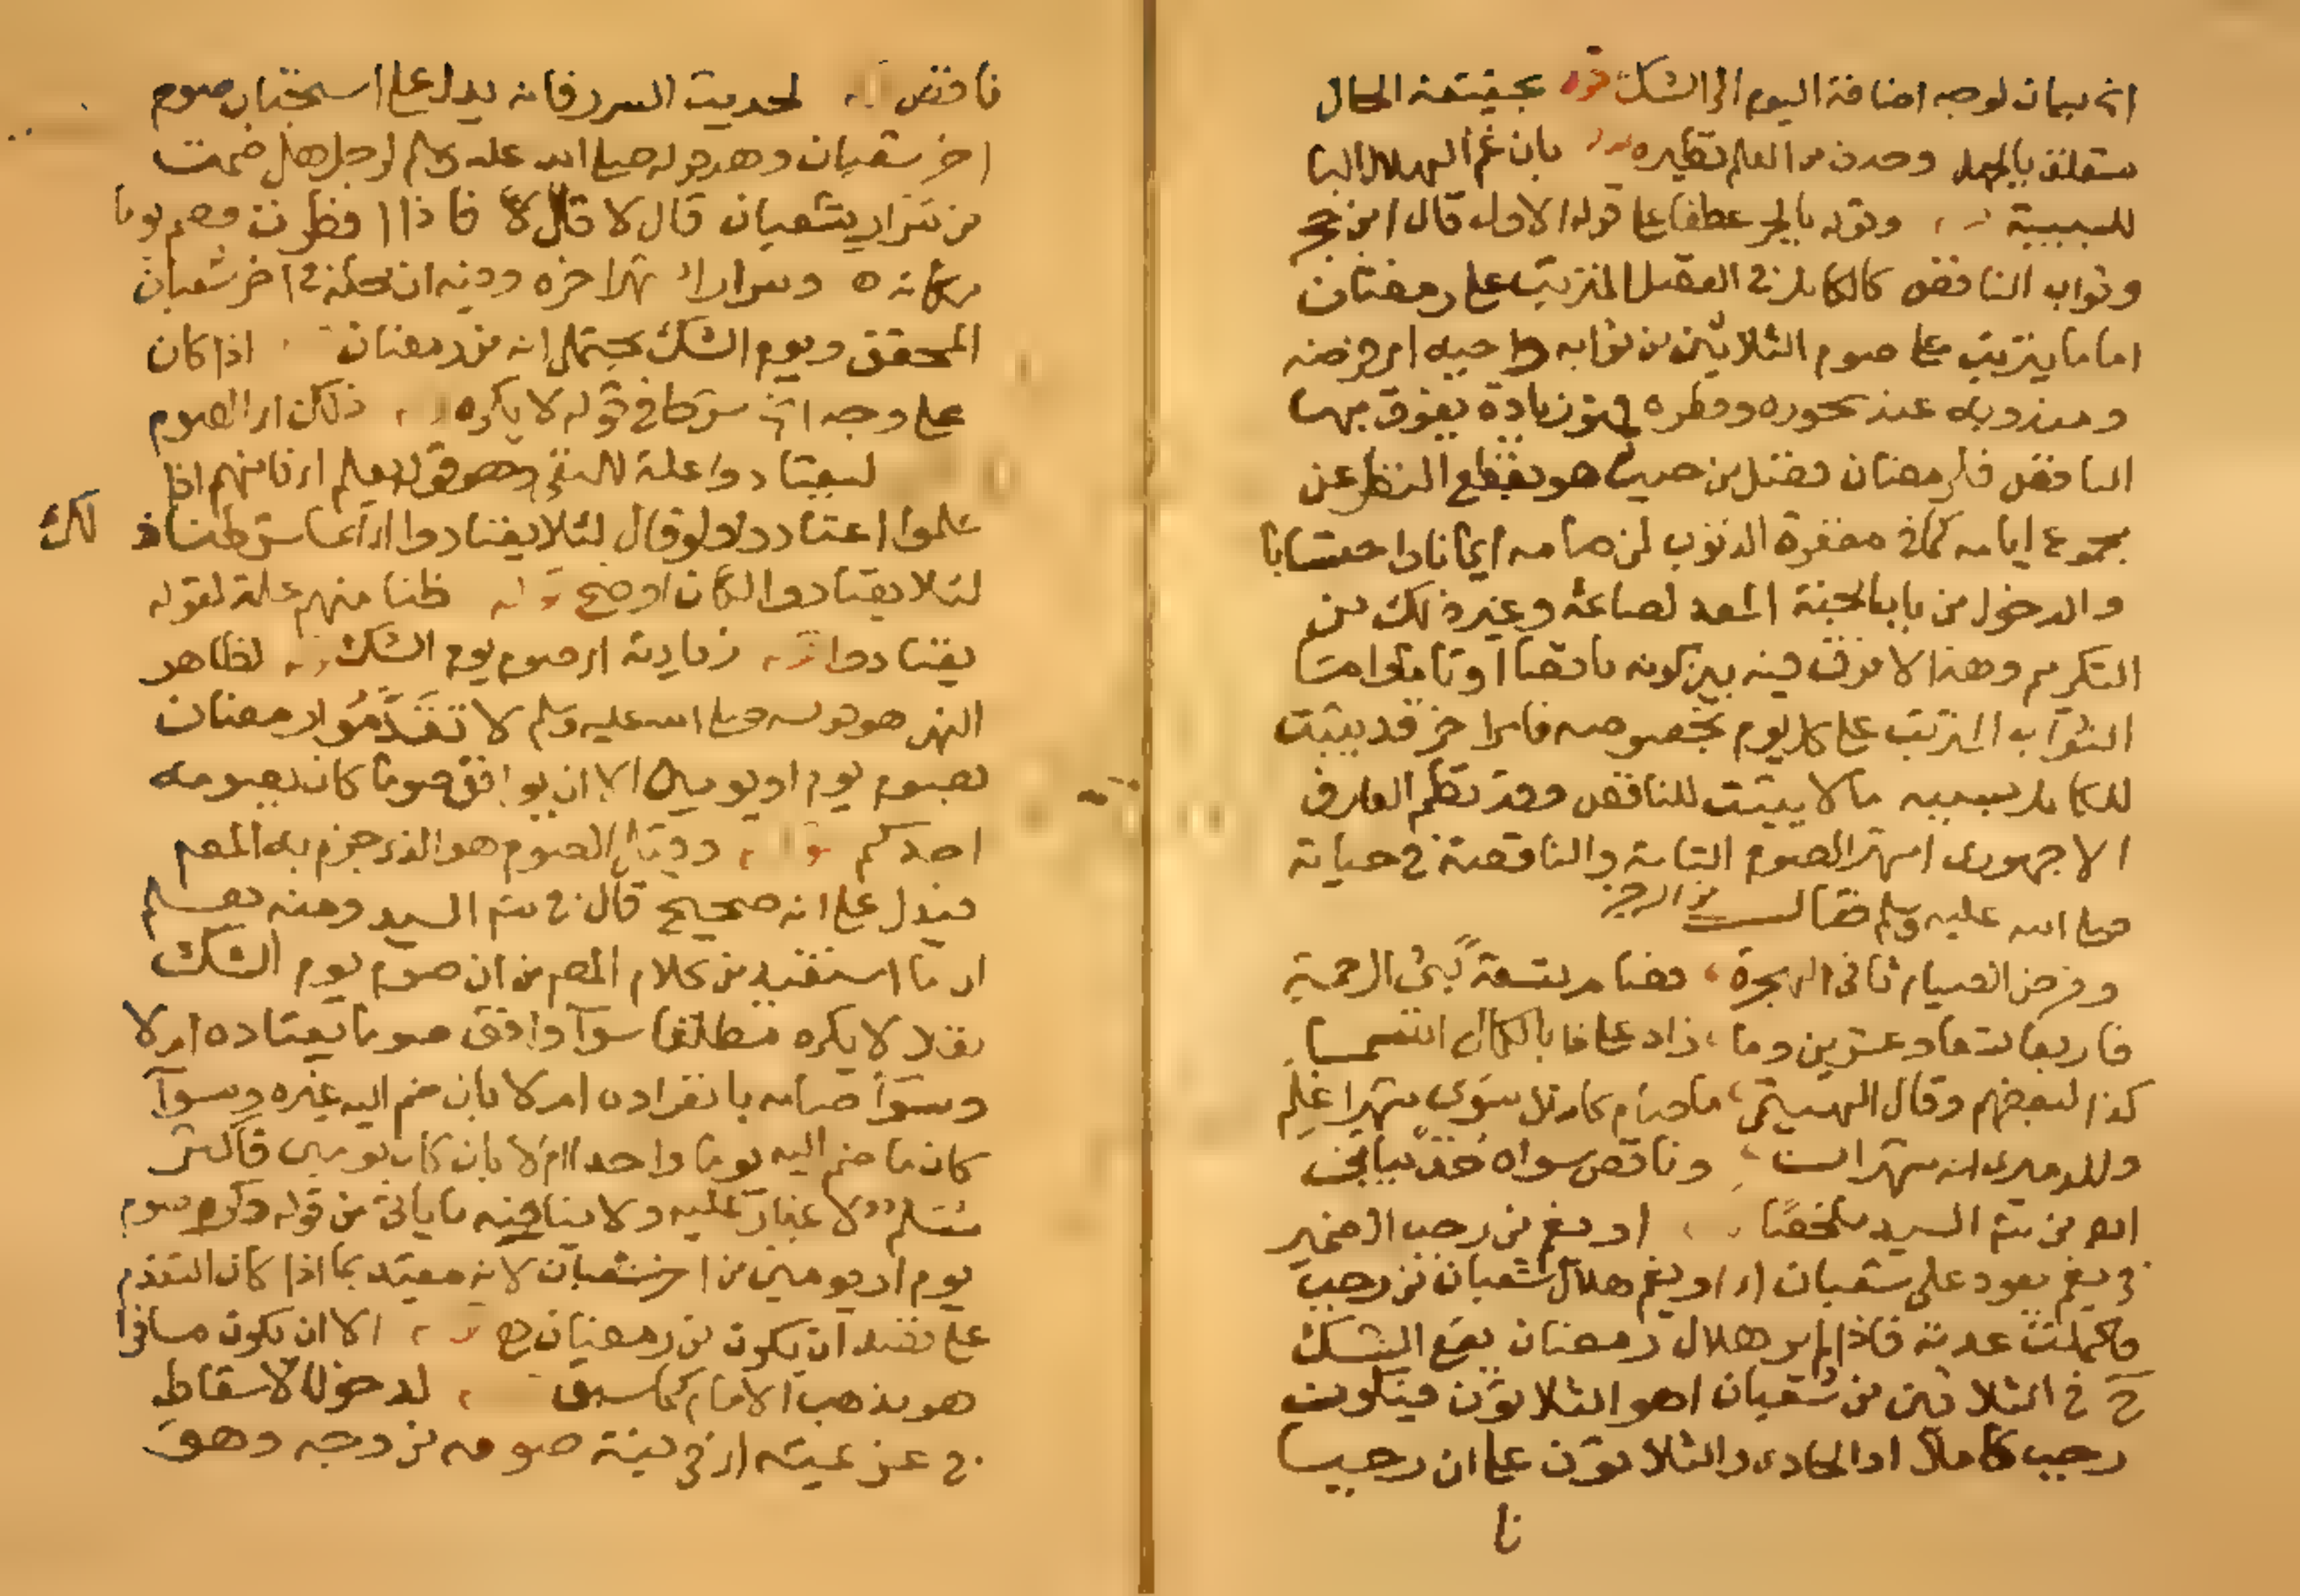 انه بيان لوجه اضافة اليوم الى الشك قوله بحقيقة الحال
متعلق بالجهل وحدف من العلم نظيره بان غم الهلال البا
للسببية وقوله بالجر عطفا على قوله الاول قال ابن حجر
وثواب الناقص كالكامل في الفضل المترتب على رمضان
اما ما يترتب على صوم الثلاثين من ثوابه واجبه اى فرضه
ومندوبه عند سحوره وفطره فهو زيادة يفوق بها
الناقص فلرمضان فضل من حيث هو بقطع النظر عن
مجموع ايامه كما في مغفرة الذنوب لمن صامه ايمانا واحتسابا
والدخول من باب الجنة المعد لصائمه وغير ذلك من
التكريم وهذا لا فرق فيه بين كونه ناقصا او تاما واما
الثواب المترتب على كل يوم بخصوصه فامر اخر قد يثبت
للكامل بسببه ما لا يثبت للناقص وقد نظم العارف
الاجهورى اشهر الصوم التامة والناقصة في حياته
صلى الله عليه وسلم فقال من الرجز
وفرض الصيام ثاني الهجرة فصام تسعة نبي الرحمة
فاربعا تسعا وعشرين وما زاد على ذا بالكمال اتسما
كذا لبعضهم وقال الهيتمى ما صام كاملا سوى شهرا علم
وللدميرى انه شهران وناقص سواه خذ بيانى
اهـ من شم السيد ملخصا او يغم من رجب الضمير
في يغم يعود على شعبان اى او يغم هلال شعبان من رجب
فاكملت عدته فاذا لم ير هلال رمضان يقع الشك
ح في الثلاثين من شعبان اهو الثلاثون فيكون
رجب كاملا او الحادى والثلاثون على ان رجبا
نا
ناقص لحديث السرر فانه يدل على استحباب صوم
اخر شعبان وهو قوله صلى الله عليه وسلم لرجل هل صمت
من سرار شعبان قال لا قال فاذا افطرت فصم يوما
مكانه وسرار الشهر اخره وفيه ان محله في اخر شعبان
المحقق ويوم الشك يحتمل انه من رمضان اذا كان
على وجه الخ شرط في قوله لا يكره ذلك اى الصوم
ليعتادوا علة للنفى وهو قوله يعلم اى فانهم اذا
علموا اعتادوا ولو قال لئلا يعتادوا اى انما شرطنا ذلك
لئلا يعتادوا لكان اوضح قوله ظنا منهم علة لقوله
يعتادوا قوله زيادته اى صوم يوم الشك قوله لظاهر
النهى هو قوله صلى الله عليه وسلم لا تقدموا رمضان
بصوم يوم او يومين الا ان يوافق صوما كان يصومه
احدكم قوله وقيل الصوم هو الذى جزم به المصم
فيدل على انه صحيح قال في شم السيد ومنه يعلم
ان ما استفيد من كلام المصم من ان صوم يوم الشك
نفلا لا يكره مطلقا سوآ وافق صوما يعتاده ام لا
وسوآ صامه بانفراده ام لا بان ضم اليه غيره وسوآ
كان ما ضم اليه يوما واحدا ام لا بان كان يومين فاكثر
مسلم لا غبار عليه ولا ينافيه ما ياتى من قوله وكره صوم
يوم او يومين من اخر شعبان لانه مقيد بما اذا كان التقدم
على قصد ان يكون من رمضان ح قوله الا ان يكون مسافرا
هو مذهب الامام كما سبق لدخول الاسقاط
في عزيمته اى في نية صومه من وجه وهو